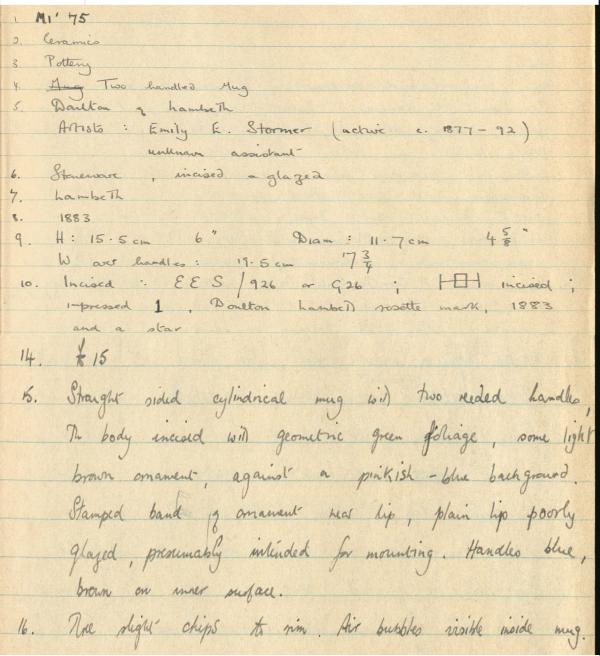 1. M1' 75
2. Ceramics
3. Pottery
4. Mug Two handled Mug
5. Doulton of Lambeth
Artists : Emily E. Stormer (active c. 1877-92)
unknown assistant
6. Stoneware, incised & glazed
7. Lambeth
8. 1883
9. H: 15.5 cm 6" Diam: 11.7 cm 4 5/8"
W over handles: 19.5 cm 7 3/4
10. Incised : EES / 926 or G26 ; incised ;
impressed 1, Doulton Lambeth rosette mark, 1883
and a star
14. £15
15. Straight sided cylindrical mug with two reeded handles,
The body incised with geometric green foliage, some light
brown ornament, against a pinkish-blue background.
Stamped band of ornament near lip, plain lip poorly
glazed, presumably intended for mounting. Handles blue,
brown on inner surface.
16. Three slight chips to rim. Air bubbles visible inside mug.